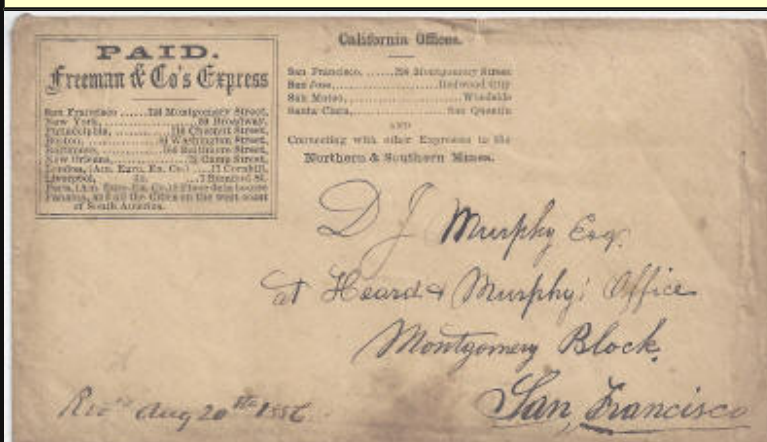 PAID.
Freeman & Co's Express
San Francisco ......Montgomery Street,
New York, ............Broadway,
Philadelphia, ......... Chesnut Street,
Boston, ............Washington Street,
Baltimore, .........Baltimore Street,
New Orleans, ............Camp Street,
London, (Am. Euro. Ex. Co.) ....Cornhill,
Liverpool, do.
Paris, (Am. Euro. Ex. Co.) 8 Place de la bourse
Panama, and all the Cities on the west coast
of South America.
California Offices.
San Francisco, ......Montgomery Street
San Jose, ............Redwood City
San Mateo, ............Woodside
Santa Clara, ............San Quentin
AND
Connecting with other Expresses to the
Northern & Southern Mines.
D J Murphy Esq.
at Heard & Murphy's Office
Montgomery Block,
San Francisco
Rec'd Aug 20th